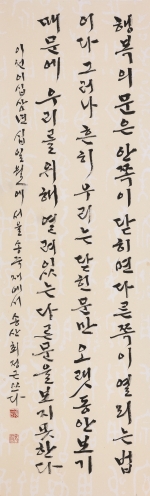 행복의 문은 안쪽이 닫히면 다른쪽이 열리는 법
이다 그러나 흔히 우리는 닫힌 문만 오랫동안 보기
때문에 우리를 위해 열려있는 다른 문을 보지 못한다
이천이십삼년 십일월에 서울 송무재에서 송산 최정근 쓰다